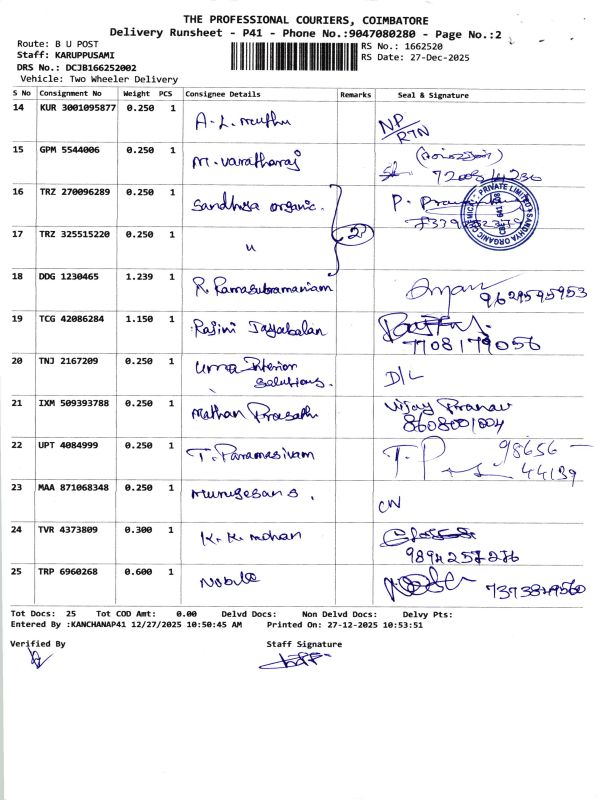 THE PROFESSIONAL COURIERS, COIMBATORE
Delivery Runsheet - P41 - Phone No.:9047080280 - Page No.:2
Route: B U POST
RS No.: 1662520
Staff: KARUPPUSAMI
RS Date: 27-Dec-2025
DRS No.: DCJB166252002
Vehicle: Two Wheeler Delivery
S No Consignment No Weight PCS Consignee Details Remarks Seal & Signature
14 KUR 3001095877 0.250 1 A. L. Muthu NP/RTN
15 GPM 5544006 0.250 1 M. Varatharaj
16 TRZ 270096289 0.250 1 Sandhya organic. 2 P.
SANDHYA ORGANIC CHEMICAL PRIVATE LIMITED
17 TRZ 325515220 0.250 1 "
18 DDG 1230465 1.239 1 R. Ramasubramaniam 9629595953
19 TCG 42086284 1.150 1 Rajini Jayabalan
7708179056
20 TNJ 2167209 0.250 1 Uma Interior Solutions. D/L
21 IXM 509393788 0.250 1 Mathan Prasath Vijay Pranav
8608001004
22 UPT 4084999 0.250 1 T. Paramasivam T. P 98656-
44139
23 MAA 871068348 0.250 1 Murugesan S. CN
24 TVR 4373809 0.300 1 K. K. Mohan
9894257276
25 TRP 6960268 0.600 1 Nobile
Tot Docs: 25 Tot COD Amt: 0.00 Delvd Docs: Non Delvd Docs: Delvy Pts:
Entered By :KANCHANAP41 12/27/2025 10:50:45 AM Printed On: 27-12-2025 10:53:51
Verified By Staff Signature